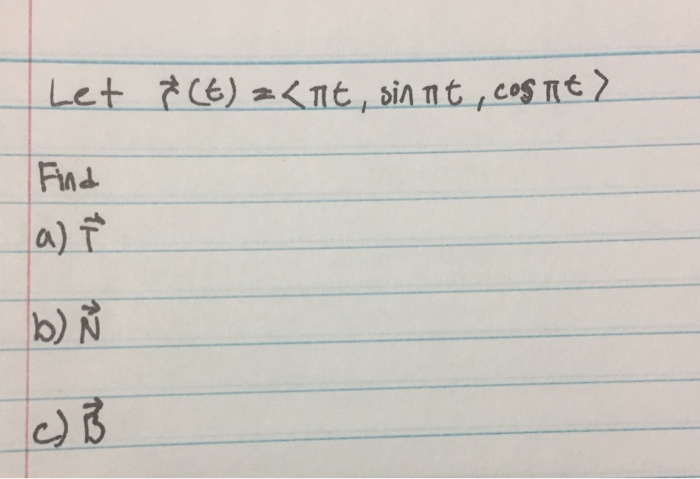 Let r⃗(t) = <πt, sin πt, cos πt>
Find
a) T⃗
b) N⃗
c) B⃗